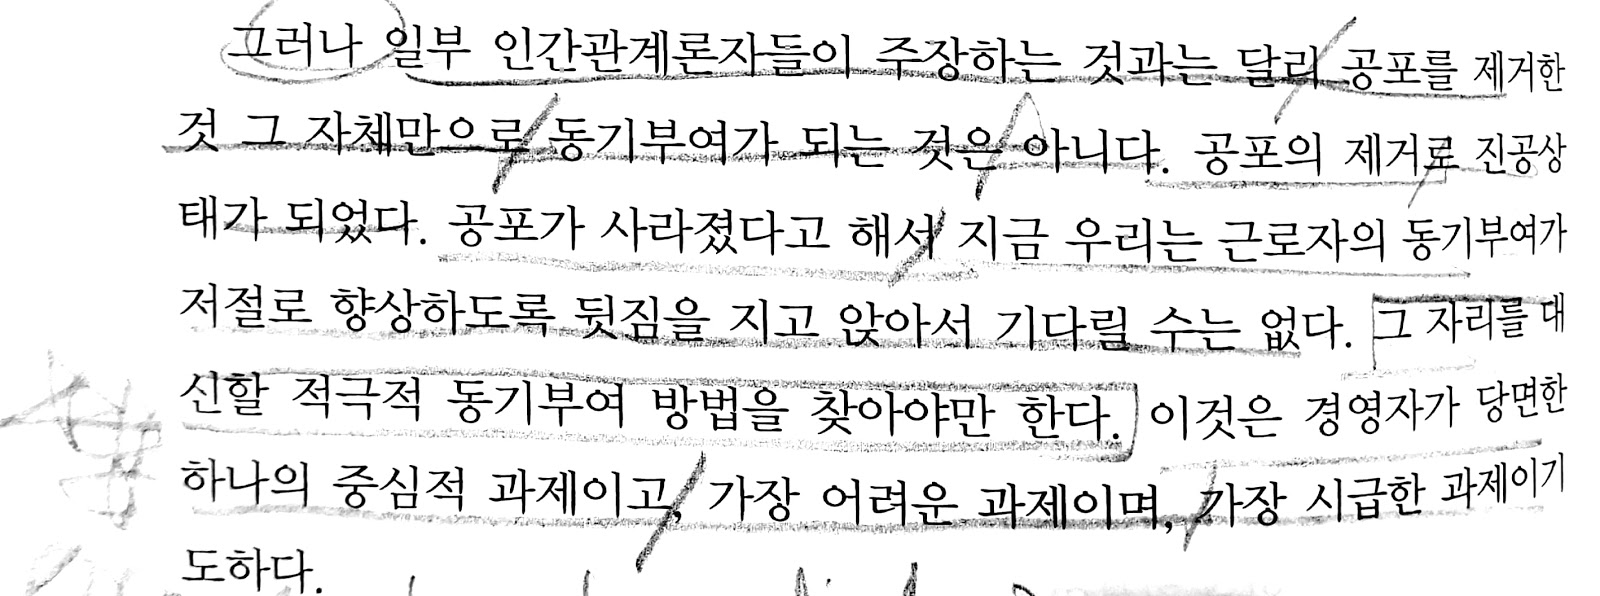 그러나 일부 인간관계론자들이 주장하는 것과는 달리 공포를 제거한
것 그 자체만으로 동기부여가 되는 것은 아니다. 공포의 제거로 진공상
태가 되었다. 공포가 사라졌다고 해서 지금 우리는 근로자의 동기부여가
저절로 향상하도록 뒷짐을 지고 앉아서 기다릴 수는 없다. 그 자리를 대
신할 적극적 동기부여 방법을 찾아야만 한다. 이것은 경영자가 당면한
하나의 중심적 과제이고, 가장 어려운 과제이며, 가장 시급한 과제이기
도하다.